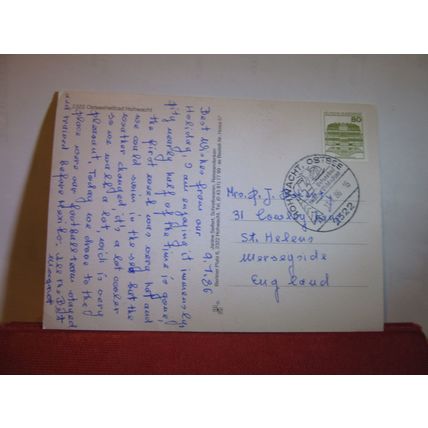 2322 Ostseeheilbad Hohwacht
9.7.86
Best Wishes from our
Holiday, I am enjoying it immensely,
pity nearly half of the time is gone,
the first week was very hot and
we could swim in the sea but the
weather changed, it's a lot cooler
so we walk a lot, wich is very
pleasant, Today we drove to the
place were our football team stayed
and trained before Mexiko.
Margret
80
HOHWACHT, OSTSEE
2322
Mrs.
31
St. Helens
Merseyside
England